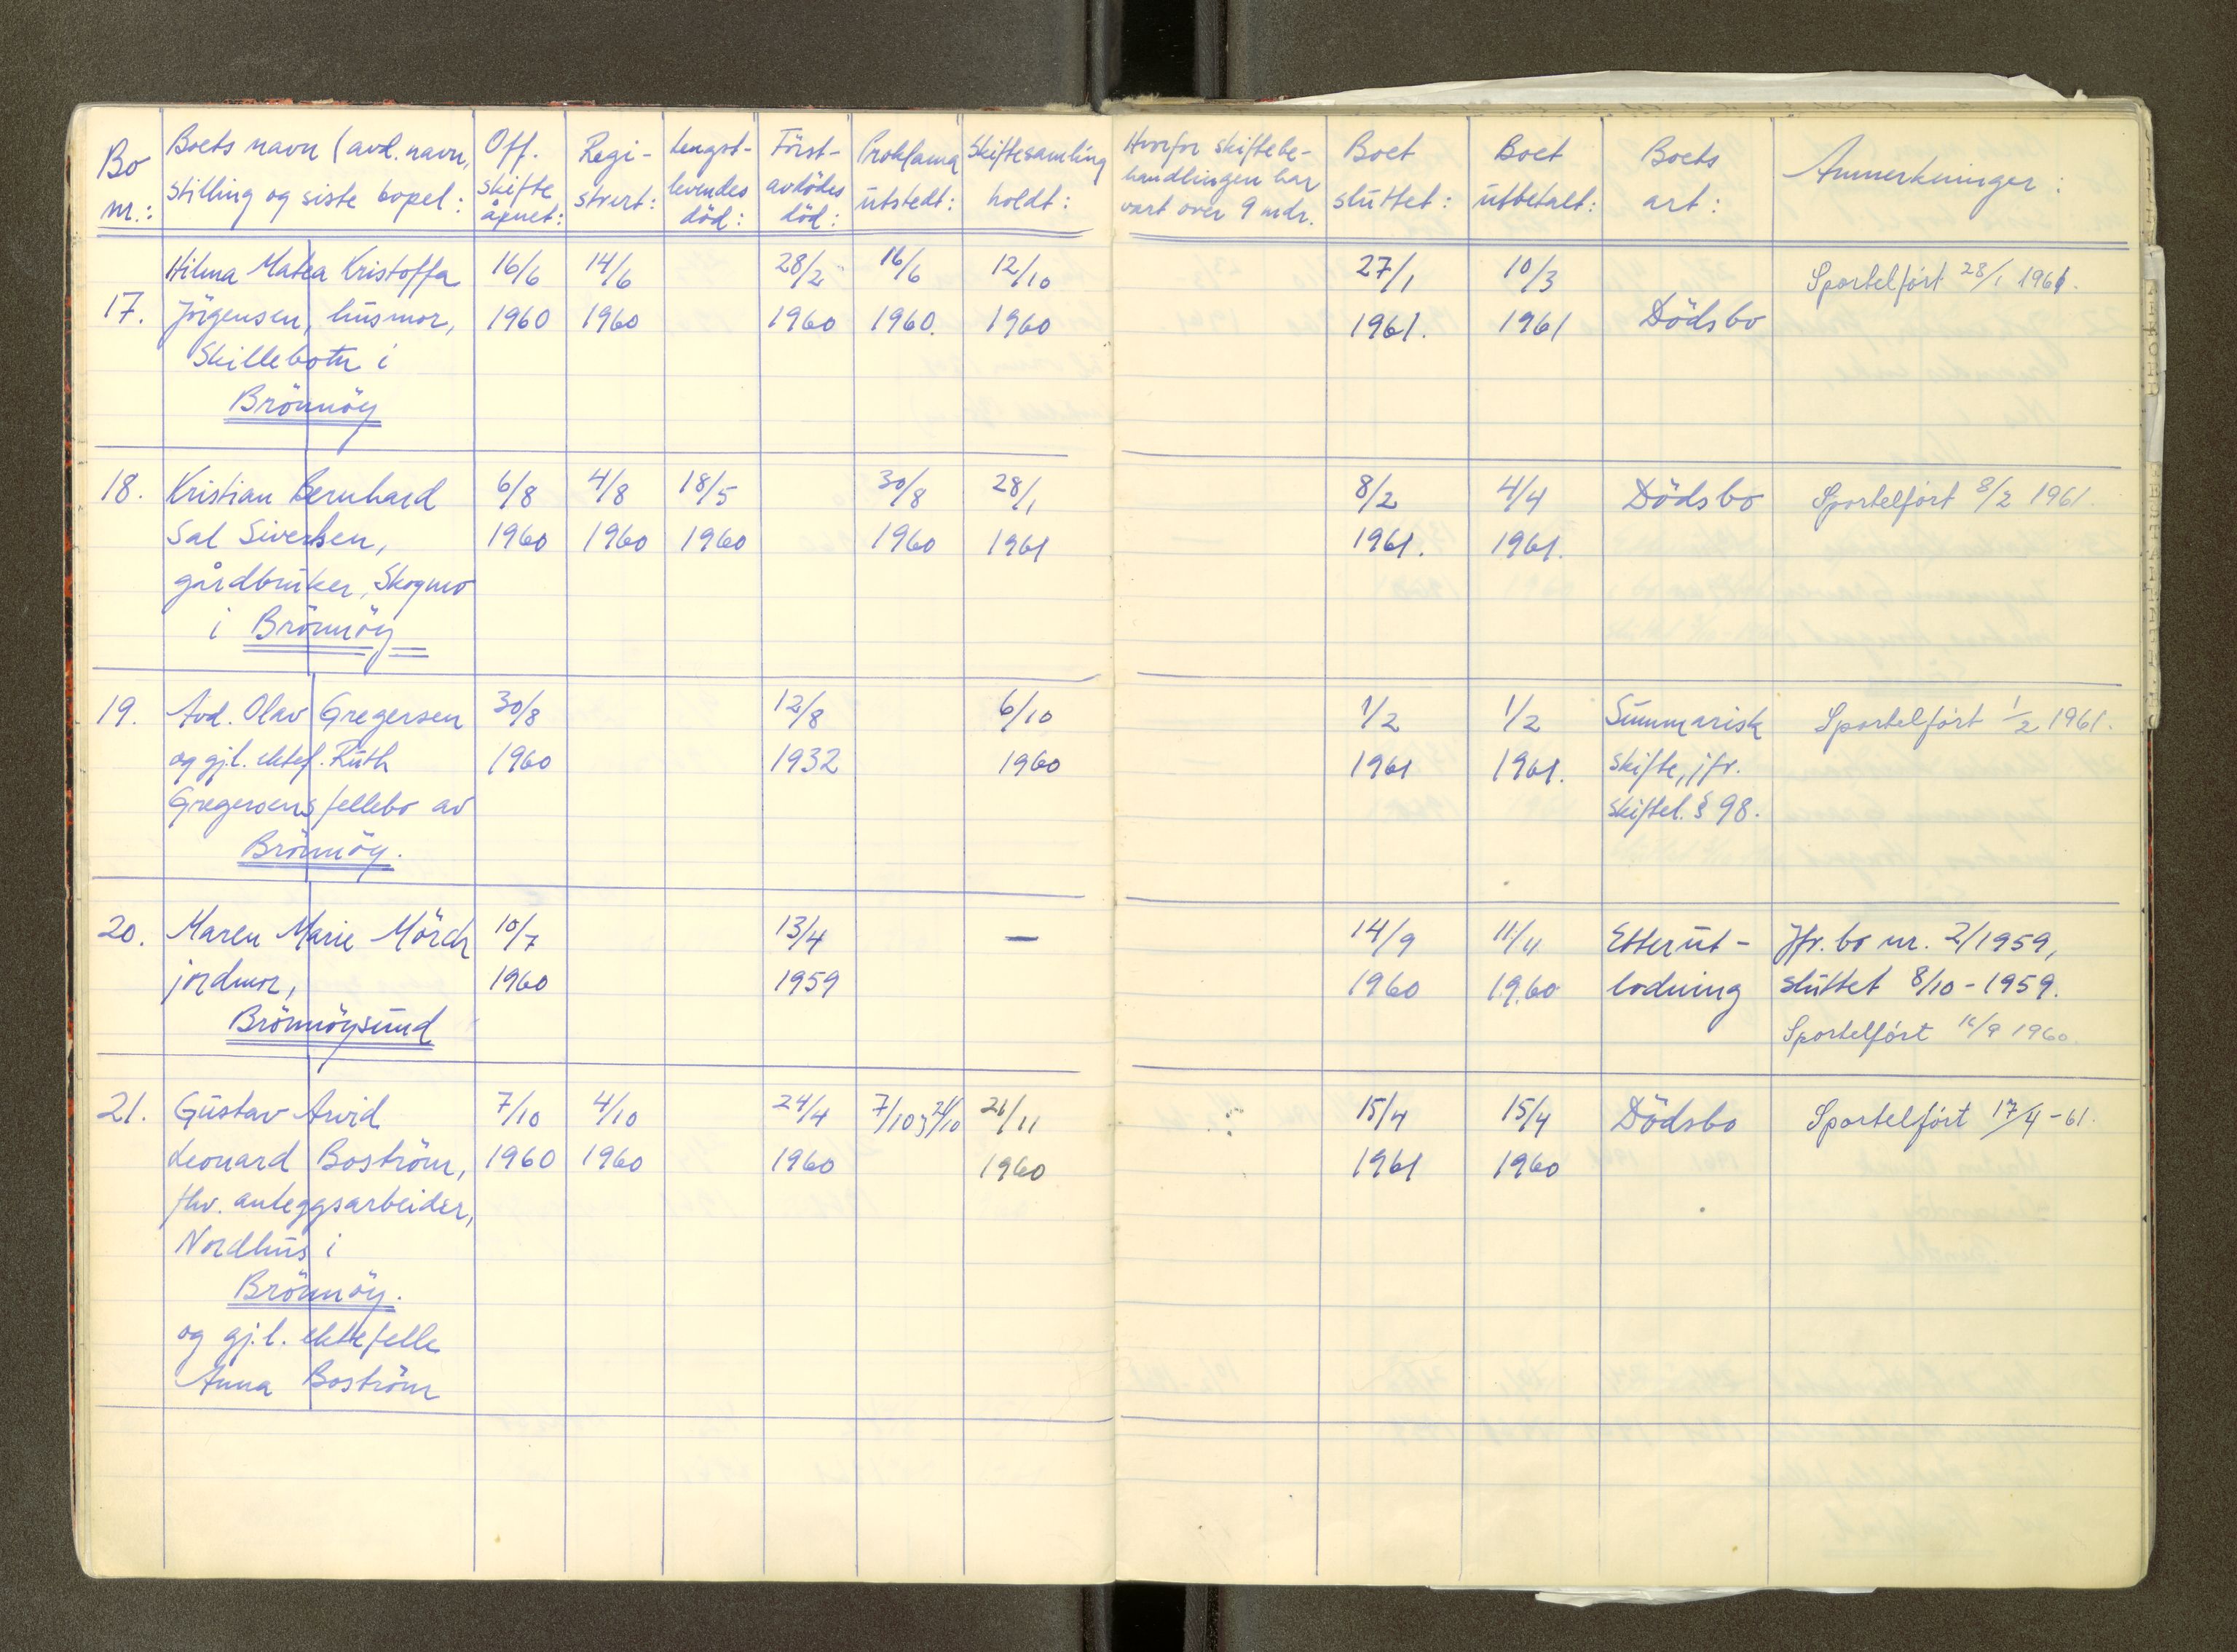 Bo nr.:
Boets navn (avd. navn, stilling og siste bopel:
Off. skifte åpnet:
Regi- strert:
Lengst- levendes död:
Först- avdödes död:
Proklama utstedt:
Skiftesamling holdt:
Hvorfor skiftebe- handlingen har vart over 9 mdr.
Boet sluttet:
Boet utbetalt:
Boets art:
Anmerkninger:
Hilma Matea Kristoffa 16/6 14/6 28/2 16/6 12/10 27/1 10/3 Sportelfört 28/1 1961.
17. Jörgensen, husmor, 1960 1960 1960 1960. 1960 1961. 1961 Dödsbo
Skillebotn i
Brönnöy
18. Kristian Bernhard 6/8 4/8 18/5 30/8 28/1 8/2 4/4 Dödsbo Sportelfört 8/2 1961.
Sal Sivertsen, 1960 1960 1960 1960 1961 1961. 1961.
gårdbruker, Skogmo
i Brönnöy
19. Avd. Olav Gregersen 30/8 12/8 6/10 1/2 1/2 Summarisk Sportelfört 1/2 1961.
og gj.l. ektef. Ruth 1960 1932 1960 1961 1961. skifte, jfr.
Gregersens fellebo av skiftel. § 98.
Brönnöy.
20. Maren Marie Mörch 10/7 13/4 — 14/9 11/11 Etterut- Jfr. bo nr. 2/1959,
jordmor, 1960 1959 1960 1960 lodning sluttet 8/10 - 1959.
Brönnöysund Sportelfört /9 1960.
21. Gustav Arvid 7/10 4/10 24/4 7/10 21/11 15/4 15/4 Dödsbo Sportelfört 17/4 - 61.
Leonard Boström, 1960 1960 1960 1960 1961 1960
fhv. anleggsarbeider,
Nordhus i
Brönnöy.
og gj.l. ektefelle
Anna Boström